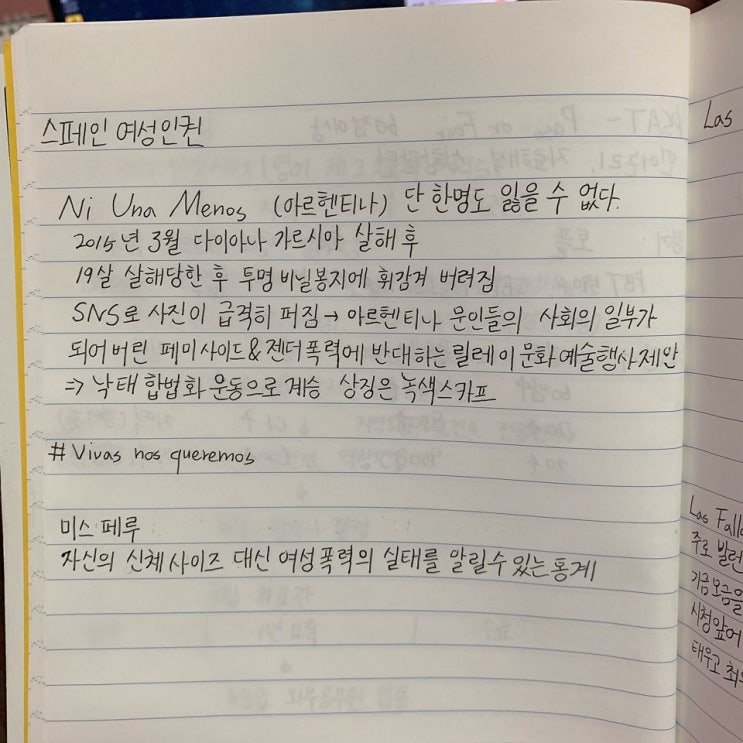 스페인 여성인권
Ni Una Menos (아르헨티나) 단 한명도 잃을 수 없다.
2015년 3월 다이아나 가르시아 살해 후
19살 살해당한 후 투명 비닐봉지에 휘감겨 버려짐
SNS로 사진이 급격히 퍼짐 → 아르헨티나 문인들의 사회의 일부가
되어버린 페미사이드 & 젠더폭력에 반대하는 릴레이 문화예술행사 제안
⇒ 낙태 합법화 운동으로 계승 상징은 녹색스카프
# Vivas nos queremos
미스 페루
자신의 신체 사이즈 대신 여성폭력의 실태를 알릴 수 있는 통계
Las
Las Fall
주로 발렌
기금모금을
시청앞에
태우고 최